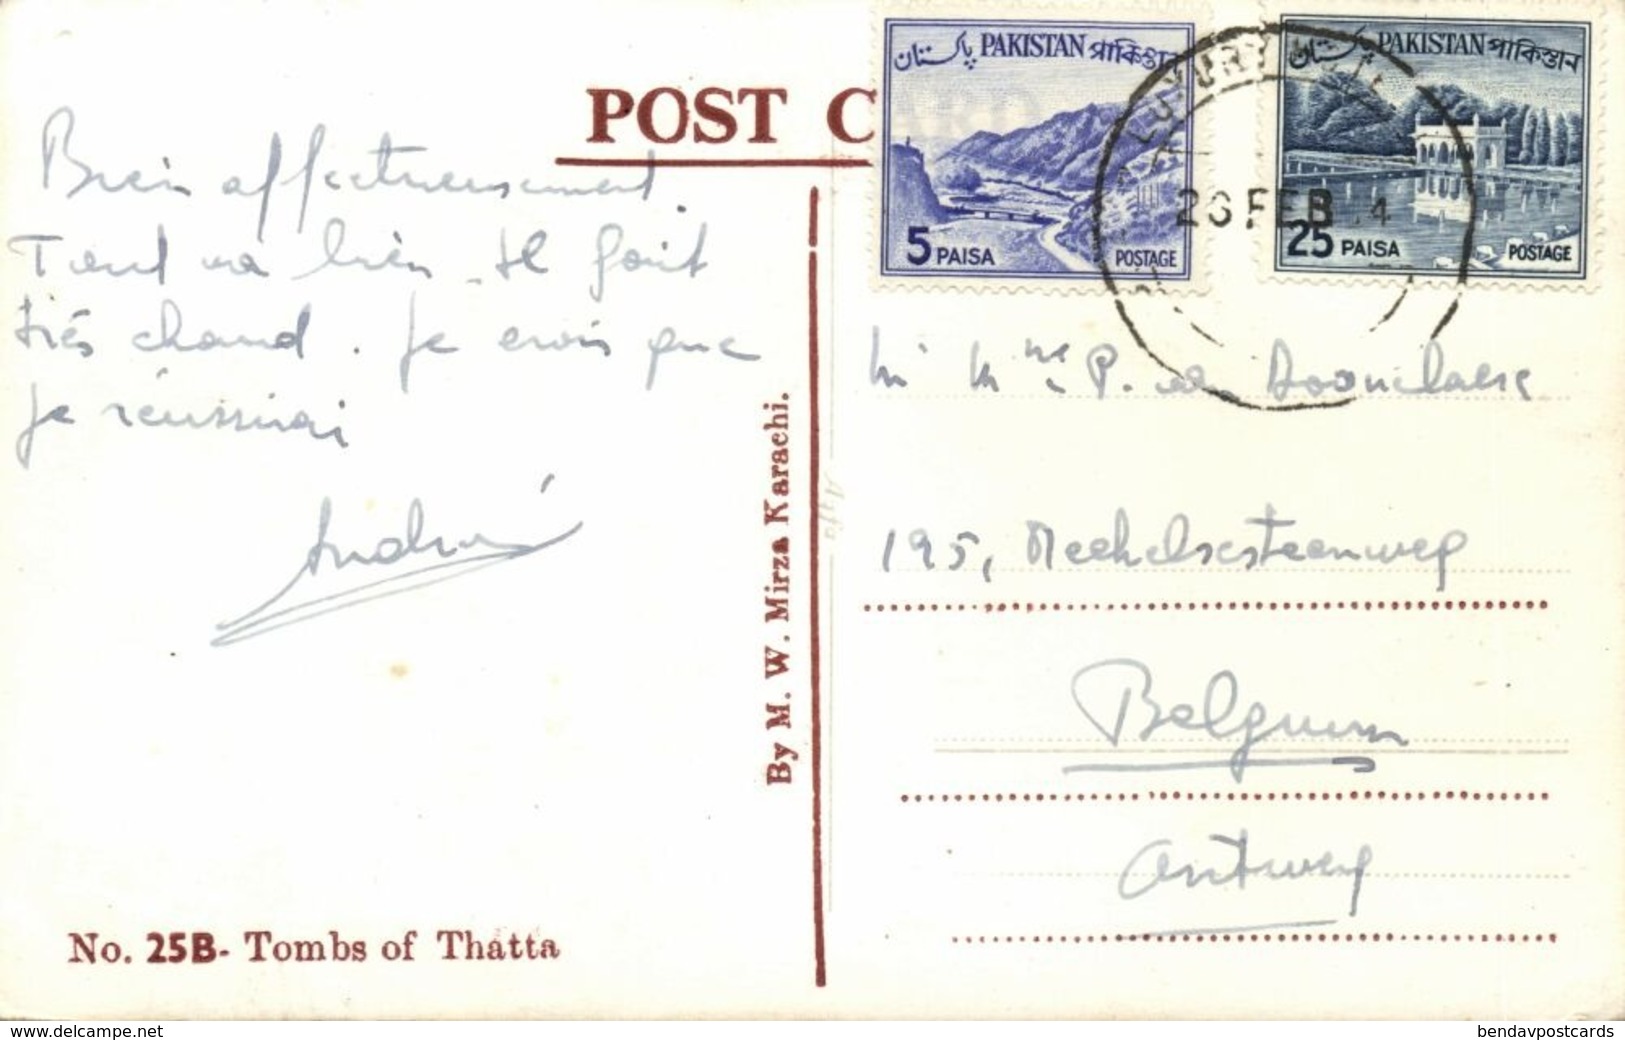 POST C
Bien affectueusement.
Tout va bien. Il fait
très chaud. Je crois que
je réussirai
André
No. 25B- Tombs of Thatta
By M. W. Mirza Karachi.
پاکستان PAKISTAN পাকিস্তান
5 PAISA POSTAGE
پاکستان PAKISTAN পাকিস্তান
25 PAISA POSTAGE
LUXURY
26 FEB 4
M Mme P.
195, Mechelsesteenweg
Belgium
Antwerp
www.delcampe.net
bendavpostcards